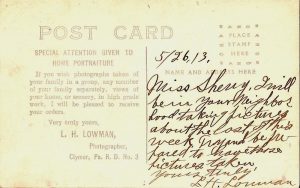 POST CARD
SPECIAL ATTENTION GIVEN TO
HOME PORTRAITURE
If you wish photographs taken
of your family in a group, any
member of your family separately, views
of your home, or scenery, in high grade
work, I will be pleased to receive
your orders.
Very truly yours,
L. H. LOWMAN,
Photographer,
Clymer, Pa. R. D. No. 3
PLACE
STAMP
HERE
5/26/13.
NAME AND ADDRESS HERE
Miss Sherry, I will
be in your neighbor
hood taking pictures
about the last of this
week
to have those
pictures taken
yours truly
L H Lowman